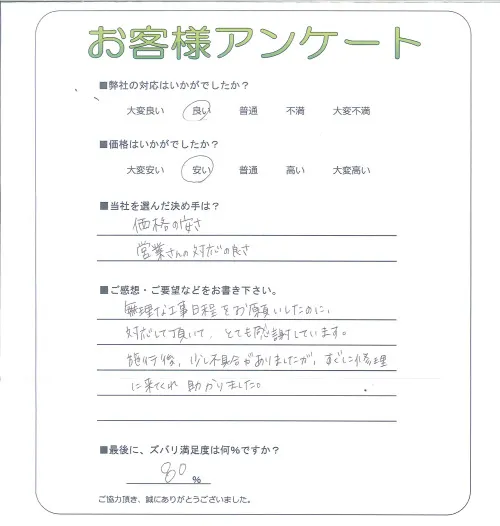 お客様アンケート
■弊社の対応はいかがでしたか？
大変良い 良い 普通 不満 大変不満
■価格はいかがでしたか？
大変安い 安い 普通 高い 大変高い
■当社を選んだ決め手は？
価格の安さ
営業さんの対応の良さ
■ご感想・ご要望などをお書き下さい。
無理な工事日程をお願いしたのに、
対応して頂いて、とても感謝しています。
施行後、少し不具合がありましたが、すぐに修理
に来てくれ助かりました。
■最後に、ズバリ満足度は何％ですか？
80 %
ご協力頂き、誠にありがとうございました。